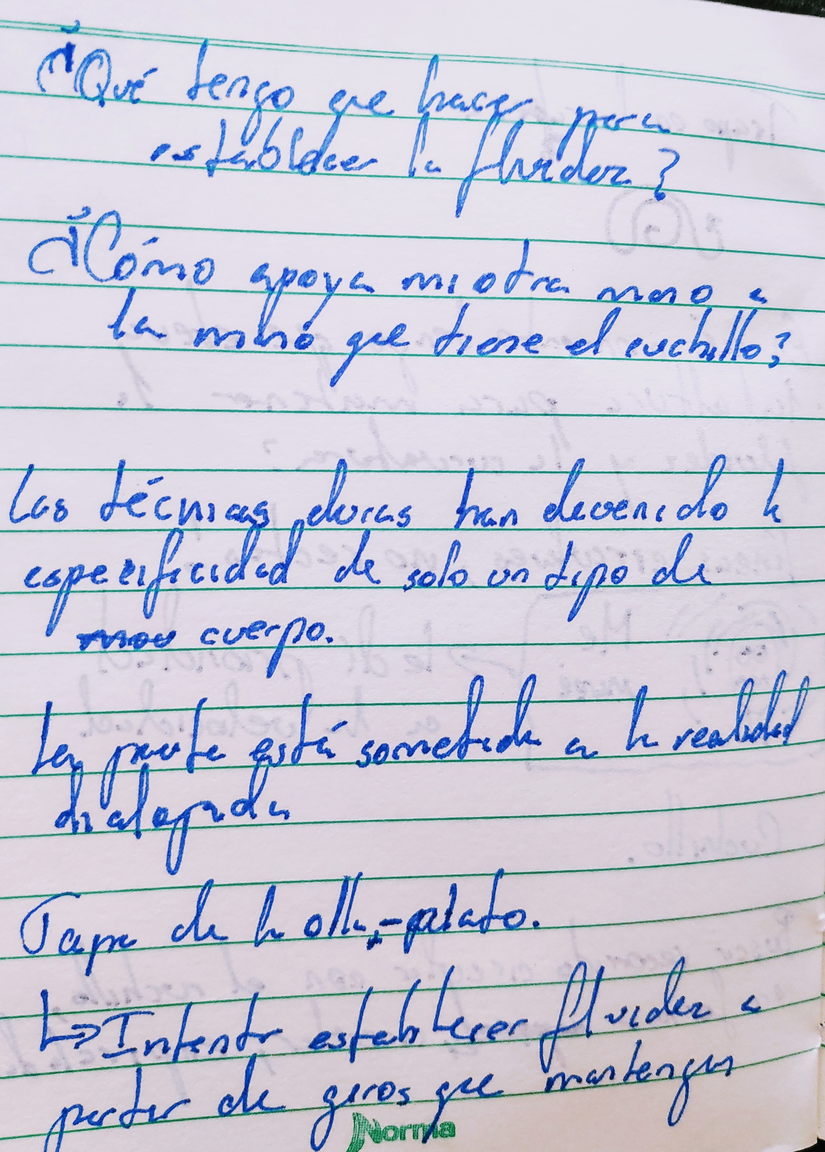 ¿Qué tengo que hacer para
establecer la fluidez?
¿Cómo apoya mi otra mano a
la mano que tiene el cuchillo?
Las técnicas duras han devenido la
especificidad de solo un tipo de
cuerpo.
La pauta está sometida a la realidad
dialogada
Tapa de la olla,-plato.
↳ Intentar establecer fluidez a
partir de giros que mantengan
Norma